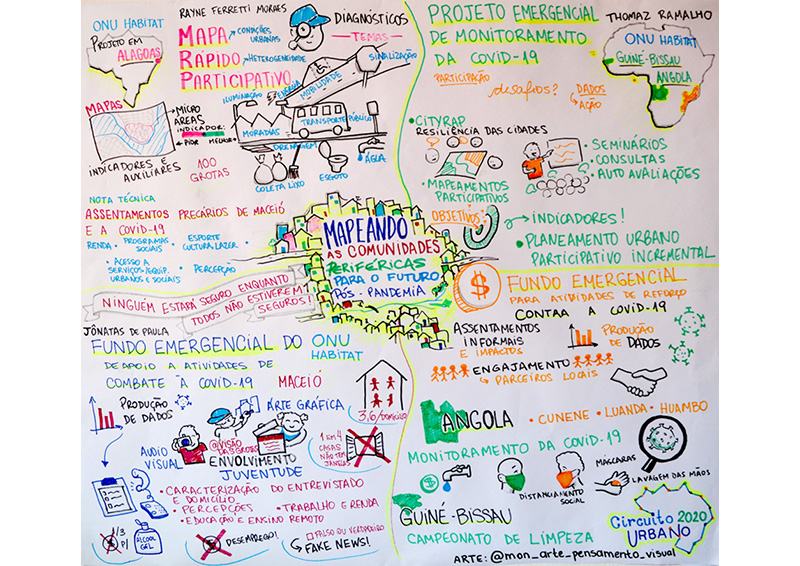 ONU HABITAT
PROJETO EM
ALAGOAS
RAYNE FERRETTI MORAES
MAPA
RÁPIDO
PARTICIPATIVO
CONDIÇÕES
URBANAS
HETEROGENEIDADE
DIAGNÓSTICOS
TEMAS
SINALIZAÇÃO
MOBILIDADE
ILUMINAÇÃO
ENERGIA
MORADIAS
TRANSPORTE PÚBLICO
DRENAGEM
ÁGUA
COLETA LIXO
ESGOTO
MAPAS
MICRO
ÁREAS
INDICADOR:
PIOR MELHOR
INDICADORES E
AUXILIARES
100
GROTAS
NOTA TÉCNICA
ASSENTAMENTOS PRECÁRIOS DE MACEIÓ
E A COVID-19
RENDA
PROGRAMAS
SOCIAIS
ESPORTE
CULTURA, LAZER
ACESSO A
SERVIÇOS/EQUIP.
URBANOS E SOCIAIS
PERCEPÇÃO
NINGUÉM ESTARÁ SEGURO ENQUANTO
TODOS NÃO ESTIVEREM
SEGUROS!
MAPEANDO
AS COMUNIDADES
PERIFÉRICAS
PARA O FUTURO
PÓS-PANDEMIA
PROJETO EMERGENCIAL
DE MONITORAMENTO
DA COVID-19
THOMAZ RAMALHO
ONU HABITAT
GUINÉ-BISSAU
ANGOLA
PARTICIPAÇÃO
desafios?
DADOS
AÇÃO
• CITYRAP
RESILIÊNCIA DAS CIDADES
• MAPEAMENTOS
PARTICIPATIVOS
• SEMINÁRIOS
• CONSULTAS
• AUTO AVALIAÇÕES
OBJETIVOS
INDICADORES!
• PLANEAMENTO URBANO
PARTICIPATIVO INCREMENTAL
JÔNATAS DE PAULA
FUNDO EMERGENCIAL DO ONU
HABITAT
DE APOIO A ATIVIDADES DE
COMBATE À COVID-19
MACEIÓ
PRODUÇÃO
DE DADOS
ARTE GRÁFICA
3,6/DOMICÍLIO
AUDIO
VISUAL
@VISÃO
DAS GROTAS
ENVOLVIMENTO
JUVENTUDE
1 EM 4
CASAS
NÃO TEM
JANELAS
• CARACTERIZAÇÃO DO ENTREVISTADO
E DOMICÍLIO
• PERCEPÇÕES
• TRABALHO E RENDA
• EDUCAÇÃO E ENSINO REMOTO
1/3
P/
ÁLCOOL
GEL
DESEMPREGO!
FALSO OU VERDADEIRO
FAKE NEWS!
FUNDO EMERGENCIAL
PARA ATIVIDADES DE REFORÇO
CONTAA A COVID-19
ASSENTAMENTOS
INFORMAIS
E IMPACTOS
PRODUÇÃO
DE DADOS
ENGAJAMENTO
PARCEIROS LOCAIS
ANGOLA
• CUNENE • LUANDA • HUAMBO
MONITORAMENTO DA COVID-19
DISTANCIAMENTO
SOCIAL
MÁSCARAS
LAVAGEM DAS MÃOS
GUINÉ-BISSAU
CAMPEONATO DE LIMPEZA
Circuito 2020
URBANO
ARTE: @mon_arte_pensamento_visual